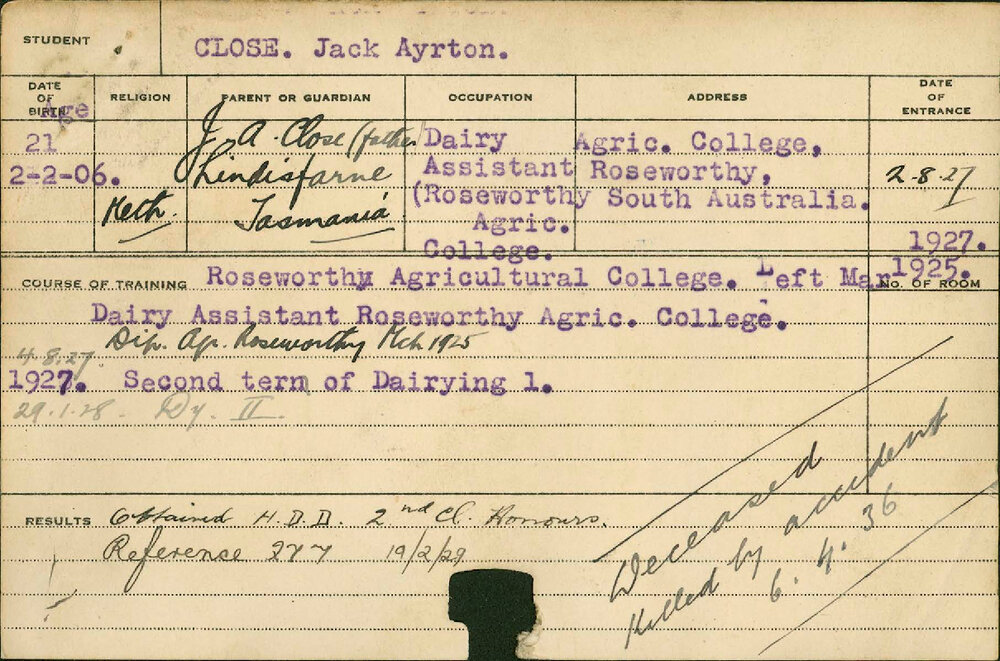 STUDENT
CLOSE. Jack Ayrton.
DATE OF BIRTH
Age
RELIGION
PARENT OR GUARDIAN
OCCUPATION
ADDRESS
DATE OF ENTRANCE
21
2-2-06.
Meth.
J. A. Close (father)
Lindisfarne
Tasmania
Dairy
Assistant
(Roseworthy
Agric.
College.
Agric. College,
Roseworthy,
South Australia.
2-8-27
1927.
COURSE OF TRAINING
Roseworthy Agricultural College. Left Mar 1925.
No. OF ROOM
Dairy Assistant Roseworthy Agric. College.
Dip. Agr. Roseworthy Mch 1925
4.8.27
1927. Second term of Dairying 1.
29.1.28. Dy. II.
RESULTS
Obtained N.D.D. 2nd Cl. Honours.
Reference 277 19/2/29
Deceased
Killed by accident
6. 4. 36